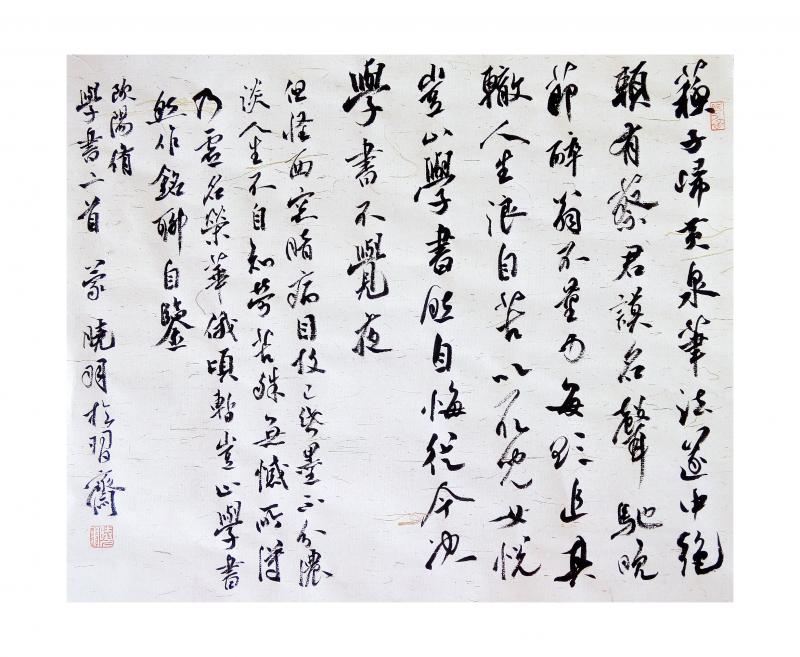 蘇子歸黃泉筆法遂中絕
賴有蔡君謨名聲馳晚
節醉翁不量力每欲追其
轍人生浪自苦以取兒女悅
豈止學書然自悔從今決
學書不覺夜
但怪西窗暗病目故已昏墨不分濃
淡人生不自知勞苦殊無憾所得
乃虛名榮華俄頃暫豈止學書
然作銘聊自鑒
歐陽脩
學書二首 蒙曉明於習齋